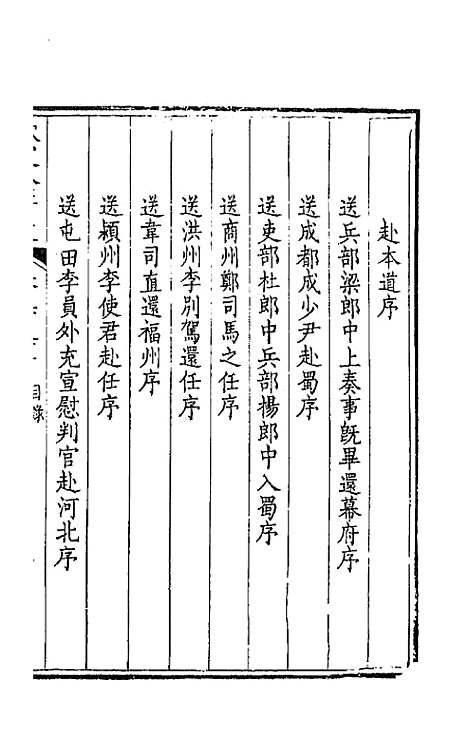 赴本道序
送兵部梁郎中上奏事旣畢還幕府序
送成都成少尹赴蜀序
送吏部杜郎中兵部楊郎中入蜀序
送商州鄭司馬之任序
送洪州李別駕還任序
送韋司直還福州序
送潁州李使君赴任序
送屯田李員外充宣慰判官赴河北序
目錄